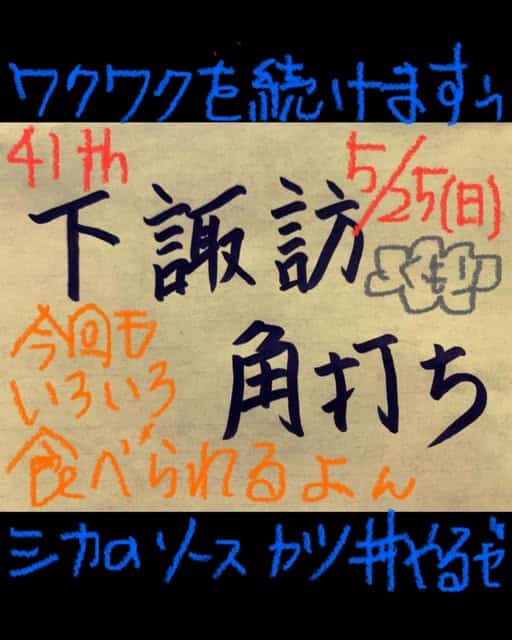 ワクワクを続けますぅ
41th
5/25(日)
下諏訪
くもり
角打ち
今回も
いろいろ
食べられるよん
シカのソースカツ丼やるぜ